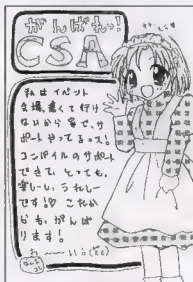 がんばれっ!
CSA
私はイベント
会場、遠くて行け
ないから家で、サ
ポートやってるっス!
コンパイルのサポート
できて、とっても、
楽しーし うれしー
です!♡ これか
らも、がんば
ります!